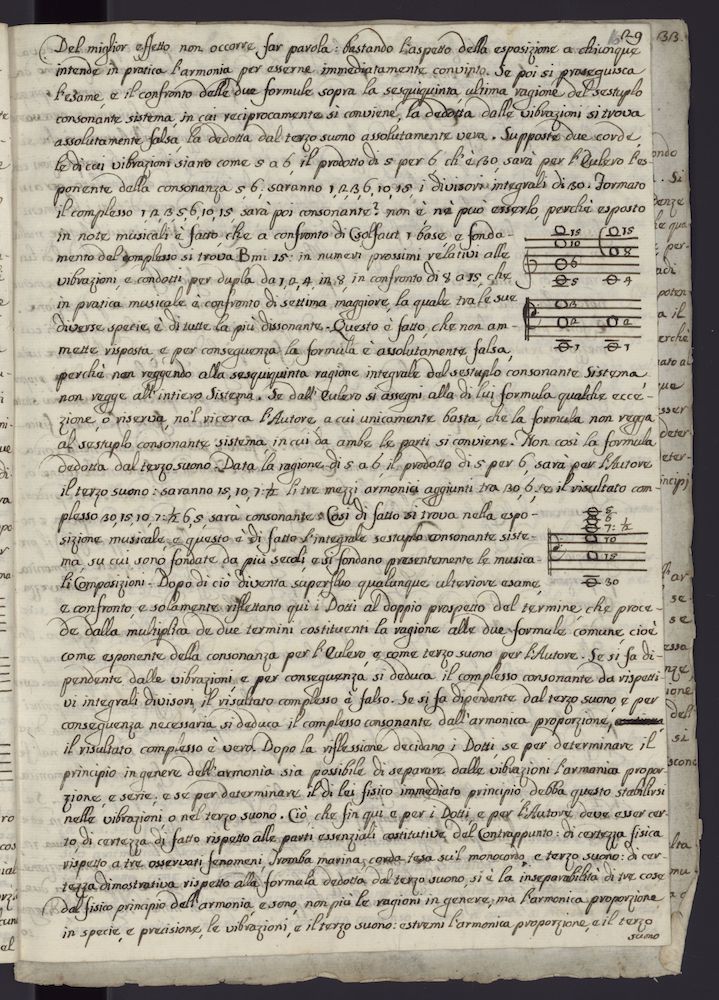 29
Del miglior effetto non occorre far parola: bastando l'aspetto della esposizione a chiunque
intende in pratica l'armonia per esserne immediatamente convinto. Se poi si proseguisca
l'esame, e il confronto delle due formule sopra la sesquiquinta ultima ragione del sestuplo
consonante sistema, in cui reciprocamente si conviene, la dedotta dalle vibrazioni si trova
assolutamente falsa, la dedotta dal terzo suono assolutamente vera. Supposte due corde
le di cui vibrazioni siano come 5 a 6, il prodotto di 5 per 6, ch'è 30, sarà per l'Eulero l'es
ponente della consonanza 5, 6; saranno 1, 2, 3, 6, 10, 15 i divisori integrali di 30. Formato
il complesso 1, 2, 3, 5, 6, 10, 15 sarà poi consonante? non è nè può esserlo, perchè esposto
in note musicali è fatto, che a confronto di Csolfaut 1 base, e fonda-
mento del complesso si trova B mi 15: in numeri prossimi relativi alle
vibrazioni, e condotti per dupla da 1, 2, 4, in 8, in confronto di 8 a 15 che
in pratica musicale è confronto di settima maggiore, la quale tra le sue
diverse specie è di tutte la più dissonante. Questo è fatto, che non am-
mette risposta, e per conseguenza la formula è assolutamente falsa,
perchè non reggendo alla sesquiquinta ragione integrale del sestuplo consonante Sistema,
non regge all'intiero Sistema. Se dall'Eulero si assegni alla di lui formula qualche ecce-
zione, o riserva, no'l ricerca l'Autore, a cui unicamente basta, che la formula non regga
al sestuplo consonante sistema, in cui da ambe le parti si conviene. Non così la formula
dedotta dal terzo suono. Data la ragione di 5 a 6 il prodotto di 5 per 6, sarà per l'Autore
il terzo suono: saranno 15, 10, 7:½ li tre mezzi armonici aggiunti tra 30, 6, 5, e il risultato com-
plesso 30, 15, 10, 7:½ 6, 5, sarà consonante. Così di fatto si trova nella espo-
sizione musicale, e questo è di fatto l'integrale sestuplo consonante siste-
ma su cui sono fondate da più secoli, e si fondano presentemente le musica-
li Composizioni. Dopo di ciò diventa superfluo qualunque ulteriore esame,
e confronto, e solamente riflettano qui i Dotti al doppio prospetto del termine, che proce-
de dalla multiplica de due termini costituenti la ragione alle due formule comune, cioè
come esponente della consonanza per l'Eulero, e come terzo suono per l'Autore. Se si fa di-
pendente dalle vibrazioni, e per conseguenza si deduca il complesso consonante da rispetti-
vi integrali divisori, il risultato complesso è falso. Se si fa dipendente dal terzo suono, e per
conseguenza necessaria si deduca il complesso consonante dall'armonica proporzione,
il risultato complesso è vero. Dopo la riflessione decidano i Dotti se per determinare il
principio in genere dell'armonia sia possibile di separare dalle vibrazioni l'armonica propor-
zione e serie: e se per determinare il di lei fisico immediato principio debba questo stabilirsi
nelle vibrazioni o nel terzo suono. Ciò che fin qui e per i Dotti, e per l'Autore deve esser cer-
to di certezza di fatto rispetto alle parti essenziali costitutive del Contrappunto: di certezza fisica
rispetto a tre osservati fenomeni Tromba marina, corda tesa su'l monocordo, e terzo suono: di cer-
tezza dimostrativa rispetto alla formula dedotta dal terzo suono, si è la inseparabilità di tre cose
dal fisico principio dell'armonia, e sono, non più le ragioni in genere, ma l'armonica proporzione
in specie, e precisione, le vibrazioni, e il terzo suono: estremi l'armonica proporzione, e il terzo
suono